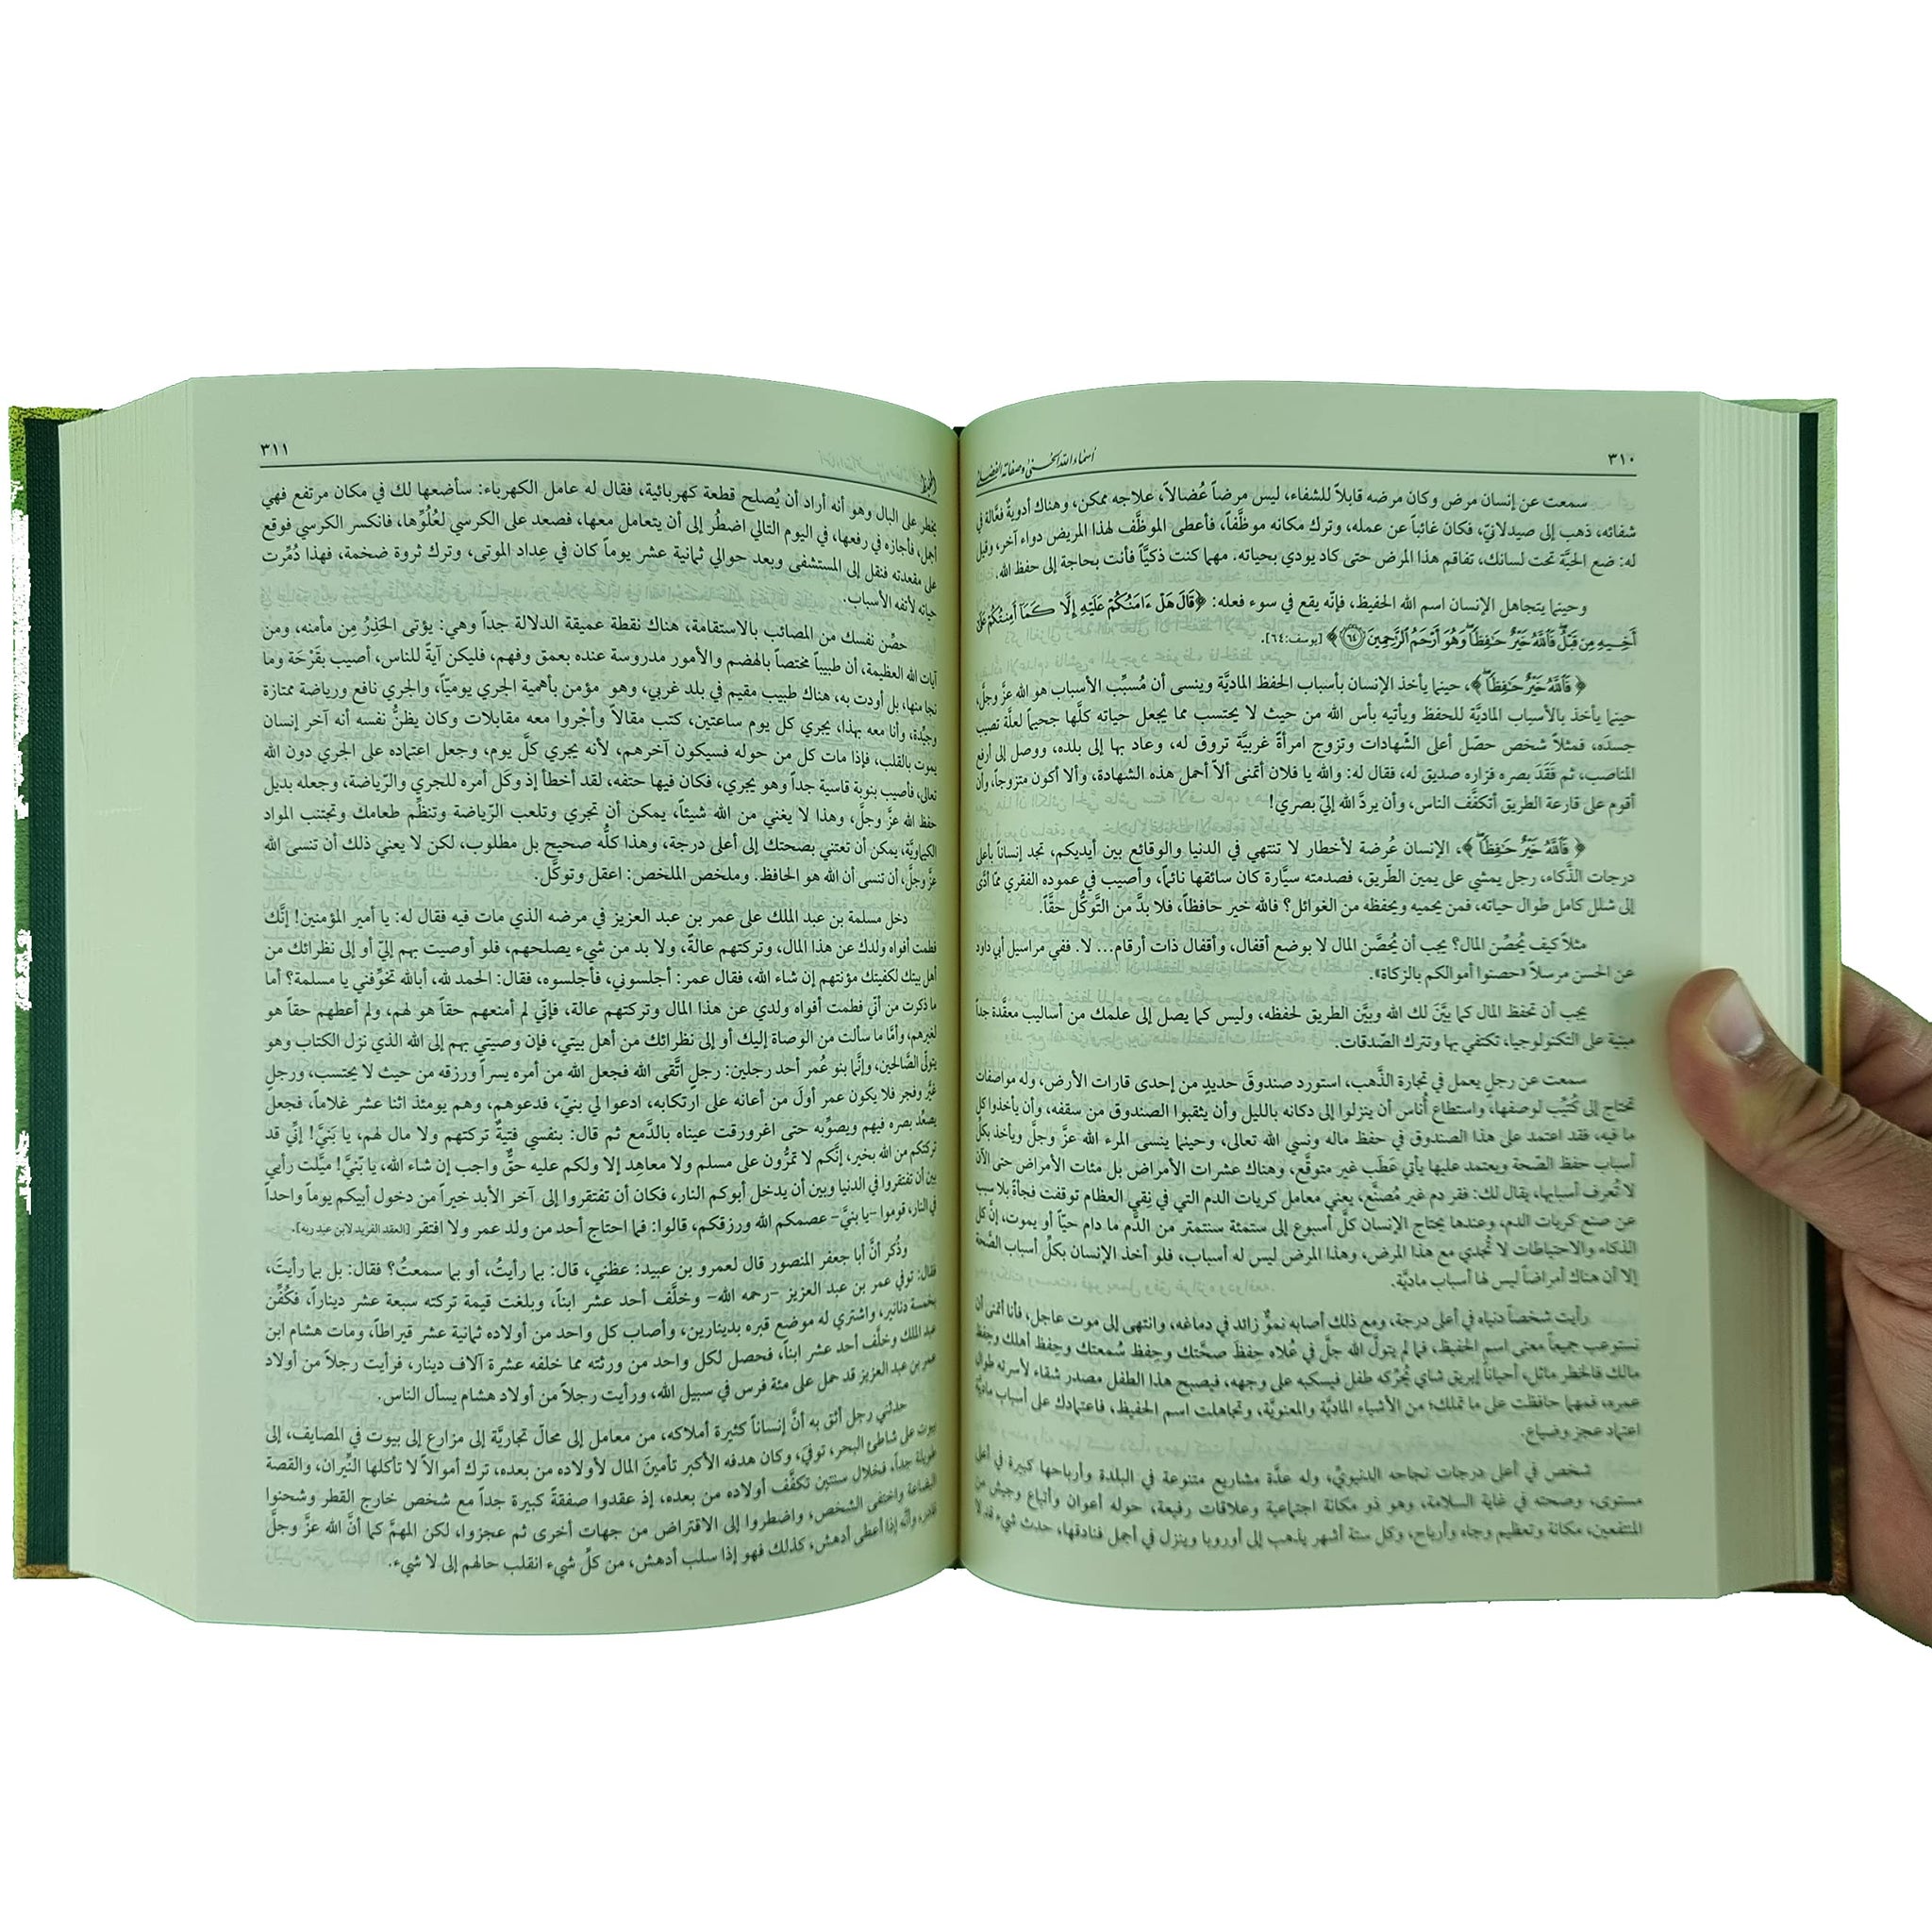 ٣١٠
أسماء الله الحسنى وصفاته الفضلى
سمعت عن إنسان مرض وكان مرضه قابلاً للشفاء، ليس مرضاً عُضالاً، علاجه ممكن، وهناك أدويةٌ فعَّالة في
شفائه، ذهب إلى صيدلانيّ، فكان غائباً عن عمله، وترك مكانه موظَّفاً، فأعطى الموظَّف لهذا المريض دواء آخر، وقيل
له: ضع الحبَّة تحت لسانك، تفاقم هذا المرض حتى كاد يودي بحياته. مهما كنت ذكيَّاً فأنت بحاجة إلى حفظ الله.
وحينما يتجاهل الإنسان اسم الله الحفيظ، فإنّه يقع في سوء فعله: ﴿قَالَ هَلْ ءَامَنُكُمْ عَلَيْهِ إِلَّا كَمَآ أَمِنتُكُمْ عَلَىٰٓ
أَخِيهِ مِن قَبْلُ فَٱللَّهُ خَيْرٌ حَٰفِظًا وَهُوَ أَرْحَمُ ٱلرَّٰحِمِينَ ٦٤﴾ [يوسف:٦٤].
﴿فَٱللَّهُ خَيْرٌ حَٰفِظًا﴾، حينما يأخذ الإنسان بأسباب الحفظ الماديَّة وينسى أن مُسبِّب الأسباب هو الله عزَّ وجلَّ،
حينما يأخذ بالأسباب الماديَّة للحفظ ويأتيه بأس الله من حيث لا يحتسب مما يجعل حياته كلَّها جحيماً لعلَّة تصيب
جسدَه، فمثلاً شخص حصّل أعلى الشّهادات وتزوج امرأةً غربيَّة تروق له، وعاد بها إلى بلده، ووصل إلى أرفع
المناصب، ثم فَقَدَ بصره فزاره صديق له، فقال له: والله يا فلان أتمنى ألاّ أحمل هذه الشهادة، وألا أكون متزوجاً، وأن
أقوم على قارعة الطريق أتكفَّف الناس، وأن يردَّ الله إليّ بصري!
﴿فَٱللَّهُ خَيْرٌ حَٰفِظًا﴾، الإنسان عُرضة لأخطار لا تنتهي في الدنيا والوقائع بين أيديكم، تجد إنساناً بأعلى
درجات الذَّكاء، رجل يمشي على يمين الطّريق، فصدمته سيَّارة كان سائقها نائماً، وأصيب في عموده الفقري ممّا أدَّى
إلى شلل كامل طوال حياته، فمن يحميه ويحفظه من الغوائل؟ فالله خير حافظاً، فلا بدَّ من التَّوكُّل حقَّاً.
مثلاً كيف يُحصَّن المال؟ يجب أن يُحصَّن المال لا بوضع أقفال، وأقفال ذات أرقام... لا. ففي مراسيل أبي داود
عن الحسن مرسلاً «حصنوا أموالكم بالزكاة».
يجب أن تحفظ المال كما بيَّن لك الله وبيَّن الطريق لحفظه، وليس كما يصل إلى علمك من أساليب معقَّدة جداً
مبنية على التكنولوجيا، تكتفي بها وتترك الصّدقات.
سمعت عن رجلٍ يعمل في تجارة الذَّهب، استورد صندوقَ حديدٍ من إحدى قارات الأرض، وله مواصفات
تحتاج إلى كُتيِّب لوصفها، واستطاع أُناس أن ينزلوا إلى دكانه بالليل وأن يثقبوا الصندوق من سقفه، وأن يأخذوا كل
ما فيه، فقد اعتمد على هذا الصندوق في حفظ ماله ونسي الله تعالى، وحينما ينسى المرء الله عزَّ وجلَّ ويأخذ بكلِّ
أسباب حفظ الصّحة ويعتمد عليها يأتي عَطَب غير متوقَّع، وهناك عشرات الأمراض بل مئات الأمراض حتى الآن
لا تُعرف أسبابها، يقال لك: فقر دم غير مُصنَّع، يعني معامل كريات الدم التي في نِقي العظام توقفت فجأةً بلا سبب
عن صنع كريات الدم، وعندها يحتاج الإنسان كلَّ أسبوع إلى ستمئة سنتمتر من الدَّم ما دام حيّاً أو يموت، إنَّ كل
الذكاء والاحتياطات لا تُجدي مع هذا المرض، وهذا المرض ليس له أسباب، فلو أخذ الإنسان بكلِّ أسباب الصَّحة
إلا أن هناك أمراضاً ليس لها أسباب ماديَّة.
رأيت شخصاً دنياه في أعلى درجة، ومع ذلك أصابه نموٌّ زائد في دماغه، وانتهى إلى موت عاجل، فأنا أتمنى أن
نستوعب جميعاً معنى اسم الحفيظ، فما لم يتولَّ الله جلَّ في عُلاه حِفظَ صحَّتك وحِفظ سُمعتك وحِفظ أهلك وحِفظ
مالك فالخطر ماثل، أحياناً إبريق شاي يُحرِّكه طفل فيسكبه على وجهه، فيصبح هذا الطفل مصدر شقاء لأسرته طوال
عمره، فمهما حافظت على ما تملك؛ من الأشياء الماديَّة والمعنويَّة، وتجاهلت اسم الحفيظ، فاعتمادك على أسباب ماديَّة
اعتماد عجز وضياع.
شخص في أعلى درجات نجاحه الدنيويِّ، وله عدَّة مشاريع متنوعة في البلدة وأرباحها كبيرة في أعلى
مستوى، وصحته في غاية السلامة، وهو ذو مكانة اجتماعية وعلاقات رفيعة، حوله أعوان وأتباع وجيش من
المنتفعين، مكانة وتعظيم وجاه وأرباح، وكل ستة أشهر يذهب إلى أوروبا وينزل في أجمل فنادقها، حدث شيء قد لا
الحفيظ
٣١١
يخطر على البال وهو أنه أراد أن يُصلح قطعة كهربائية، فقال له عامل الكهرباء: سأضعها لك في مكان مرتفع فهي
أجمل، فأجازه في رفعها، في اليوم التالي اضطُر إلى أن يتعامل معها، فصعد على الكرسي لعُلُوِّها، فانكسر الكرسي فوقع
على مقعدته فنقل إلى المستشفى وبعد حوالي ثمانية عشر يوماً كان في عِداد الموتى، وترك ثروة ضخمة، فهذا دُمِّرت
حياته لأتفه الأسباب.
حصّن نفسك من المصائب بالاستقامة، هناك نقطة عميقة الدلالة جداً وهي: يؤتى الحَذِرُ مِن مأمنه، ومن
آيات الله العظيمة، أن طبيباً مختصاً بالهضم والأمور مدروسة عنده بعمق وفهم، فليكن آيةً للناس، أصيب بقَرْحَة وما
نجا منها، بل أودت به، هناك طبيب مقيم في بلد غربي، وهو مؤمن بأهمية الجري يوميّاً، والجري نافع ورياضة ممتازة
وجيِّدة، وأنا معه بهذا، يجري كل يوم ساعتين، كتب مقالاً وأجْروا معه مقابلات وكان يظنُّ نفسه أنه آخر إنسان
يموت بالقلب، فإذا مات كل من حوله فسيكون آخرهم، لأنه يجري كلَّ يوم، وجعل اعتماده على الجري دون الله
تعالى، فأصيب بنوبة قاسية جداً وهو يجري، فكان فيها حتفه، لقد أخطأ إذ وكَل أمره للجري والرّياضة، وجعله بديل
حفظ الله عزَّ وجلَّ، وهذا لا يغني من الله شيئاً، يمكن أن تجري وتلعب الرّياضة وتنظِّم طعامك وتجتنب المواد
الكيماويَّة، يمكن أن تعتني بصحتك إلى أعلى درجة، وهذا كلُّه صحيح بل مطلوب، لكن لا يعني ذلك أن تنسى الله
عزَّ وجلَّ، أن تنسى أن الله هو الحافظ. وملخص الملخص: اعقل وتوكَّل.
دخل مسلمة بن عبد الملك على عمر بن عبد العزيز في مرضه الذي مات فيه فقال له: يا أمير المؤمنين! إنَّك
فطمت أفواه ولدك عن هذا المال، وتركتهم عالةً، ولا بد من شيء يصلحهم، فلو أوصيت بهم إليّ أو إلى نظرائك من
أهل بيتك لكفيتك مؤنتهم إن شاء الله، فقال عمر: أجلسوني، فأجلسوه، فقال: الحمد لله، أبالله تخوِّفني يا مسلمة؟ أما
ما ذكرت من أنّي فطمت أفواه ولدي عن هذا المال وتركتهم عالة، فإنّي لم أمنعهم حقاً هو لهم، ولم أعطهم حقاً هو
لغيرهم، وأمّا ما سألت من الوصاة إليك أو إلى نظرائك من أهل بيتي، فإن وصيتي بهم إلى الله الذي نزل الكتاب وهو
يتولّى الصَّالحين، وإنَّما بنو عُمر أحد رجلين: رجلٍ اتَّقى الله فجعل الله من أمره يسراً ورزقه من حيث لا يحتسب، ورجلٍ
غيَّر وفجر فلا يكون عمر أولَ من أعانه على ارتكابه، ادعوا لي بنيّ، فدعوهم، وهم يومئذ اثنا عشر غلاماً، فجعل
يصعّد بصره فيهم ويصوِّبه حتى اغرورقت عيناه بالدَّمع ثم قال: بنفسي فتيةٌ تركتهم ولا مال لهم، يا بَنيَّ! إنِّي قد
تركتكم من الله بخير، إنَّكم لا تمرُّون على مسلم ولا معاهِد إلا ولكم عليه حقٌّ واجب إن شاء الله، يا بَنيَّ! ميَّلت رأيي
بين أن تفتقروا في الدنيا وبين أن يدخل أبوكم النار، فكان أن تفتقروا إلى آخر الأبد خيراً من دخول أبيكم يوماً واحداً
في النار، قوموا -يا بنيَّ- عصمكم الله ورزقكم، قالوا: فما احتاج أحد من ولد عمر ولا افتقر [العقد الفريد لابن عبد ربه].
وذُكر أنَّ أبا جعفر المنصور قال لعمرو بن عبيد: عظني، قال: بما رأيتُ، أو بما سمعتُ؟ فقال: بل بما رأيتَ،
فقال: توفي عمر بن عبد العزيز -رحمه الله- وخلَّف أحد عشر ابناً، وبلغت قيمة تركته سبعة عشر ديناراً، فكُفِّن
بخمسة دنانير، واشتري له موضع قبره بدينارين، وأصاب كل واحد من أولاده ثمانية عشر قيراطاً، ومات هشام ابن
عبد الملك وخلَّف أحد عشر ابناً، فحصل لكل واحد من ورثته مما خلفه عشرة آلاف دينار، فرأيت رجلاً من أولاد
عمر بن عبد العزيز قد حمل على مئة فرس في سبيل الله، ورأيت رجلاً من أولاد هشام يسأل الناس.
حدثني رجل أثق به أنَّ إنساناً كثيرة أملاكه، من معامل إلى محالّ تجاريَّة إلى مزارع إلى بيوت في المصايف، إلى
بيوت على شاطئ البحر، توفيَ، وكان هدفه الأكبر تأمينَ المال لأولاده من بعده، ترك أموالاً لا تأكلها النّيران، والقصة
طويلة جداً، فخلال سنتين تكفَّف أولاده من بعده، إذ عقدوا صفقةً كبيرة جداً مع شخص خارج القطر وشحنوا
البضاعة واختفى الشخص، واضطروا إلى الاقتراض من جهات أخرى ثم عجزوا، لكن المهمَّ كما أنَّ الله عزَّ وجلَّ
قادر، وأنَّه إذا أعطى أدهش، كذلك فهو إذا سلب أدهش، من كلِّ شيء انقلب حالهم إلى لا شيء.